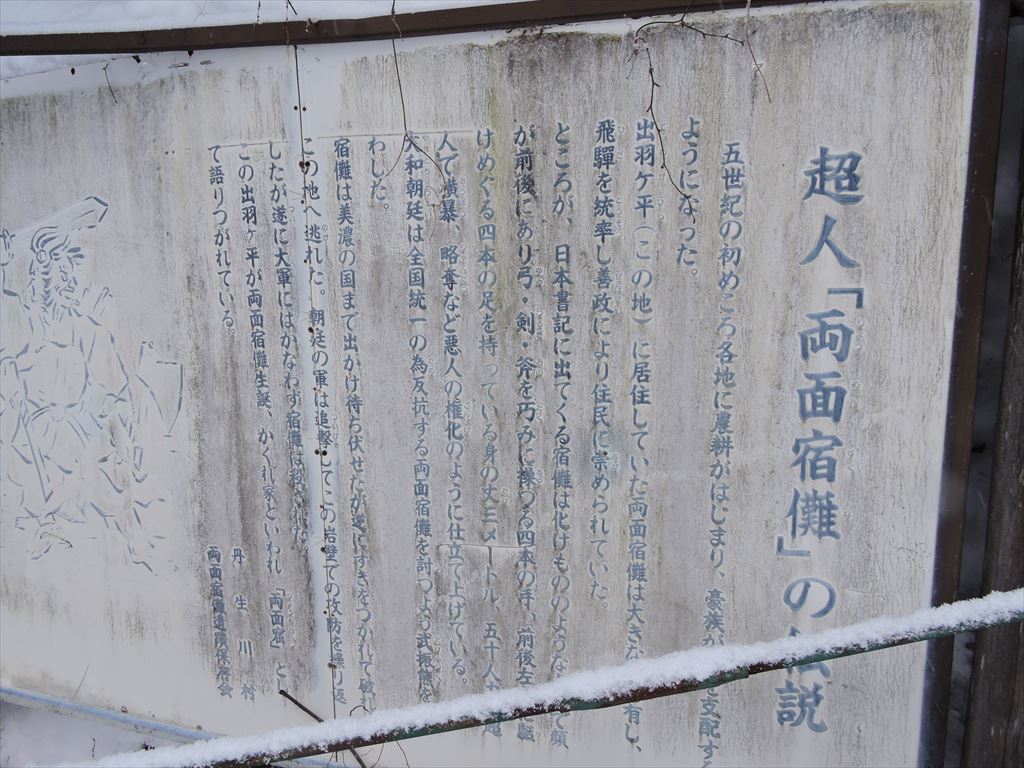 超人「両面宿儺」の伝説
五世紀の初めころ各地に農耕がはじまり、豪族が を支配する
ようになった。
出羽ケ平（この地）に居住していた両面宿儺は大きな 有し、
飛驒を統率し善政により住民に崇められていた。
ところが、日本書記に出てくる宿儺は化けもののような で頭
が前後にあり弓・剣・斧を巧みに操つる四本の手、前後左 に駆
けめぐる四本の足を持っている身の丈三メートル、五十人力の
人で横暴、略奪など悪人の権化のように仕立て上げている。
大和朝廷は全国統一の為反抗する両面宿儺を討つよう武振熊を
わした。
宿儺は美濃の国まで出かけ待ち伏せたが逆にすきをつかれて敗
この地へ逃れた。朝廷の軍は追撃してこの岩壁での攻防を操り返
したが遂に大軍にはかなわず宿儺は殺された。
この出羽ヶ平が両面宿儺生誕、かくれ家といわれ「両面窟」と
て語りつがれている。
丹生川村
両面宿儺遺蹟保存会